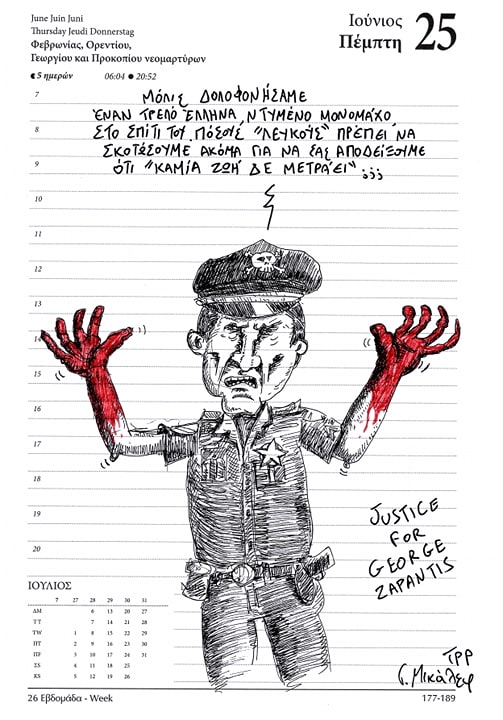 June Juin Juni
Thursday Jeudi Donnerstag
Φεβρωνίας, Ορεντίου,
Γεωργίου και Προκοπίου νεομαρτύρων
5 ημερών 06:04 ● 20:52
Ιούνιος
Πέμπτη
25
7
8
9
10
11
12
13
14
15
16
17
18
19
20
ΜΟΛΙΣ ΔΟΛΟΦΟΝΗΣΑΜΕ
ΈΝΑΝ ΤΡΕΛΌ ΈΛΛΗΝΑ, ΝΤΥΜΕΝΟ ΜΟΝΟΜΑΧΟ,
ΣΤΟ ΣΠΙΤΙ ΤΟΥ. ΠΟΣΟΥΣ "ΛΕΥΚΟΥΣ" ΠΡΕΠΕΙ ΝΑ
ΣΚΟΤΩΣΟΥΜΕ ΑΚΟΜΑ ΓΙΑ ΝΑ ΣΑΣ ΑΠΟΔΕΙΞΟΥΜΕ
ΟΤΙ "ΚΑΜΙΑ ΖΩΗ ΔΕ ΜΕΤΡΑΕΙ";;;
JUSTICE
FOR
GEORGE
ZAPANTIS
TPP
Τ. Μικάλεφ
ΙΟΥΛΙΟΣ
7 27 28 29 30 31
ΔΜ 6 13 20 27
ΤΤ 7 14 21 28
TW 1 8 15 22 29
ΠΤ 2 9 16 23 30
ΠF 3 10 17 24 31
ΣS 4 11 18 25
ΚS 5 12 19 26
26 Εβδομάδα - Week
177-189